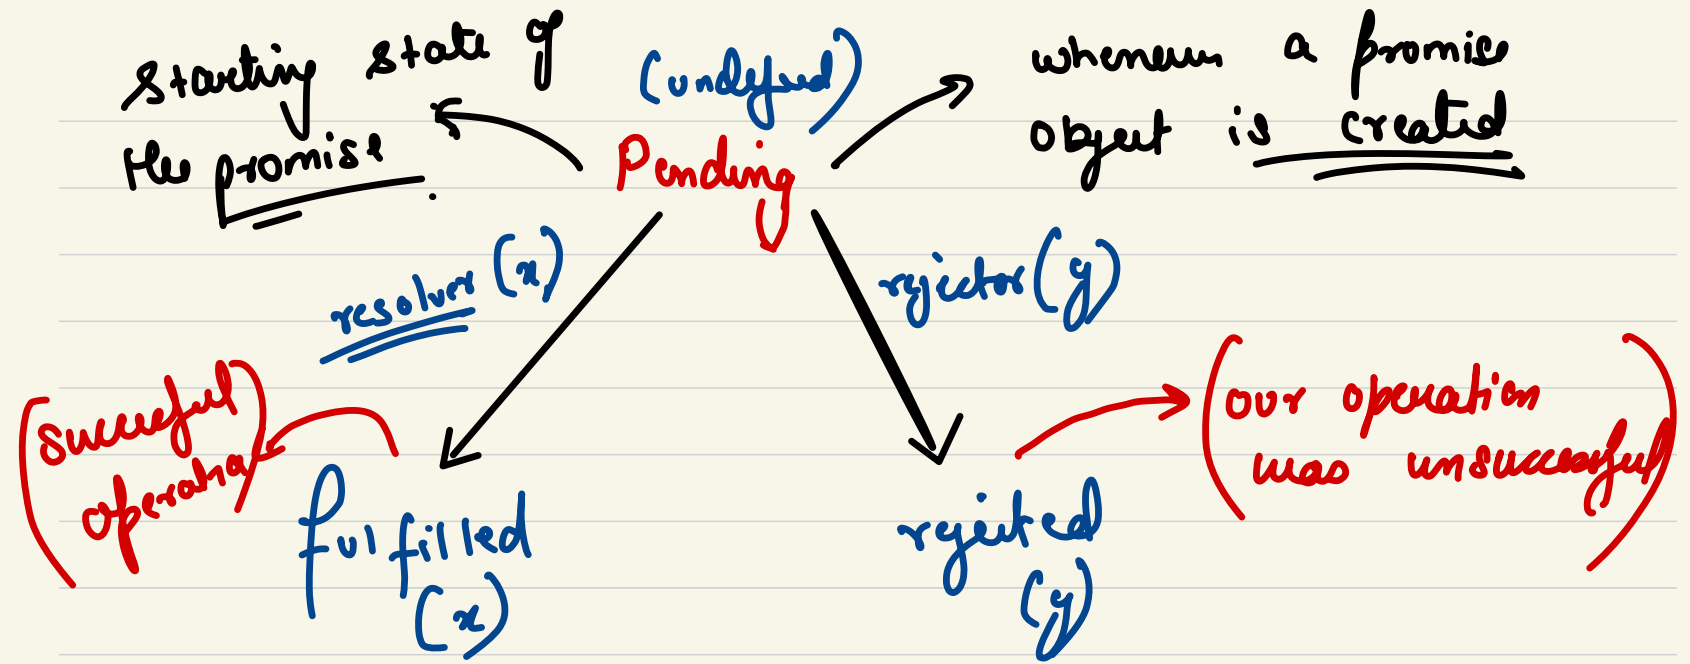 starting state of
the promise
(undefined)
Pending
whenever a promise
object is created
resolver (x)
rejector (y)
(successful
operation)
fulfilled
(x)
rejected
(y)
(our operation
was unsuccessful)